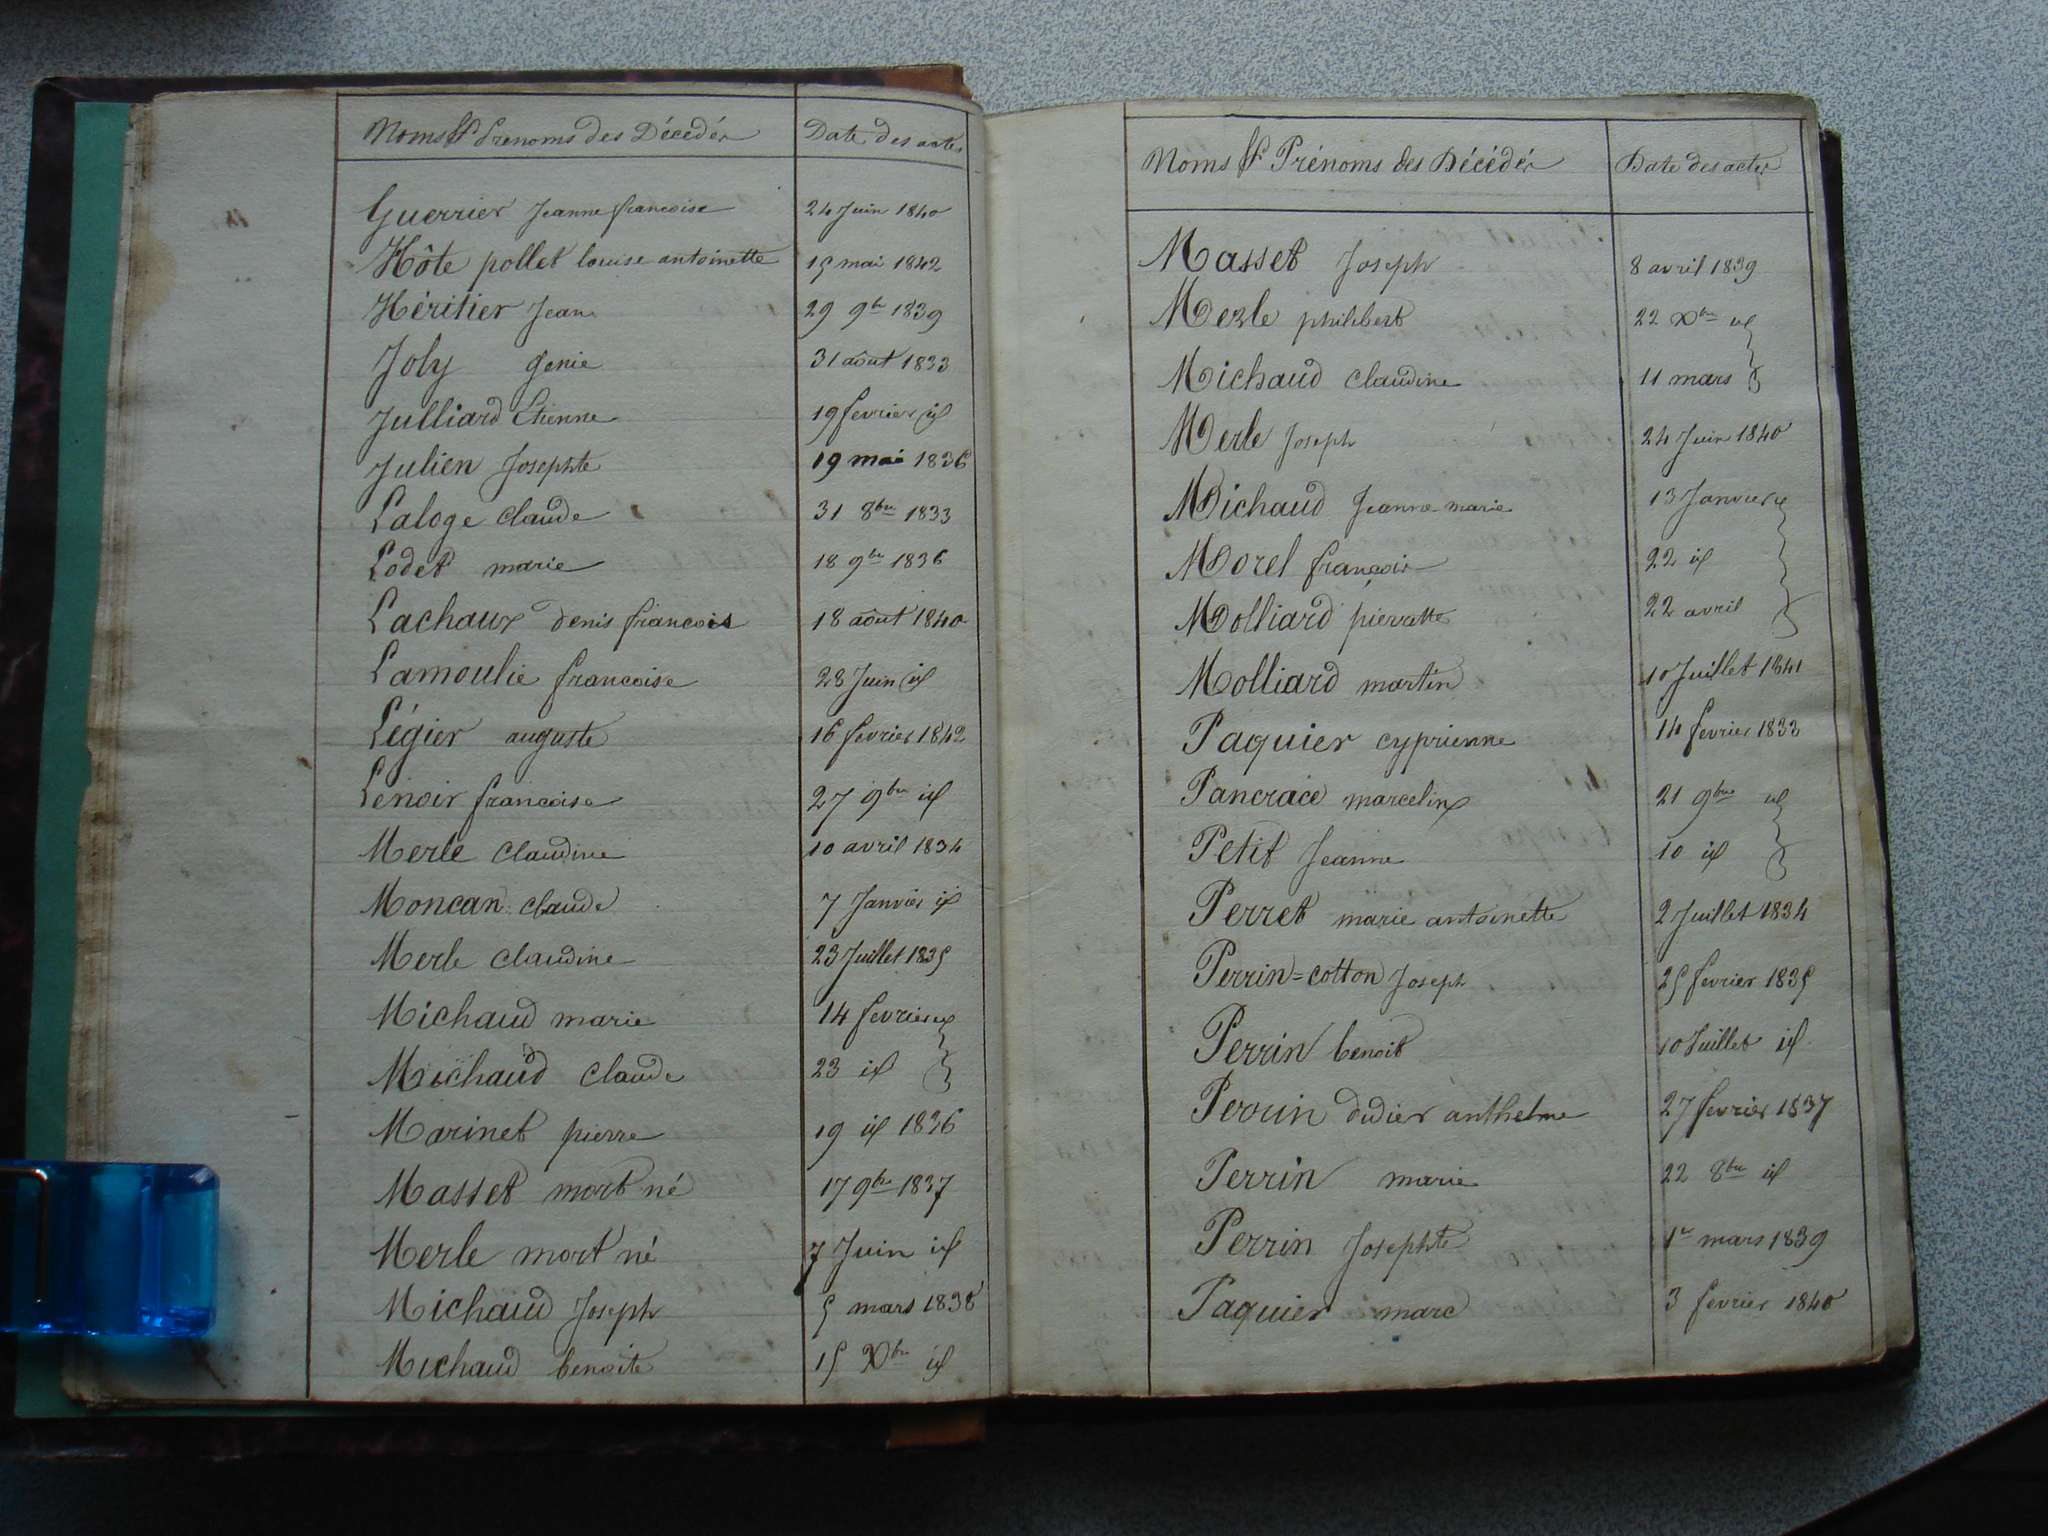 Noms & Prenoms des Décédés Date des actes
Guerrier Jeanne francoise 24 Juin 1840
Hôte pollet louise antoinette 15 mai 1842
Héritier Jean 29 9bre 1839
Joly genie 31 août 1833
Julliard Etienne 19 fevrier id
Julien Josephte 19 mai 1836
Laloge claude 31 8bre 1833
Lodet marie 18 9bre 1836
Lachaux denis francois 18 août 1840
Lamoulie francoise 28 Juin id
Légier auguste 16 fevrier 1842
Lenoir francoise 27 9bre id
Merle claudine 10 avril 1834
Moncan claude 7 Janvier id
Merle claudine 23 Juillet 1835
Michaud marie 14 fevrier id
Michaud claude 23 id
Marinet pierre 19 id 1836
Masset mort né 17 9bre 1837
Merle mort né 7 Juin id
Michaud Joseph 5 mars 1838
Michaud benoite 15 Xbre id
Noms & Prénoms des Décédés Date des actes
Masset Joseph 8 avril 1839
Merle philibert 22 Xbre id
Michaud claudine 11 mars
Merle Joseph 24 Juin 1840
Michaud Jeanne marie 13 Janvier id
Morel françois 22 id
Molliard pierrette 22 avril
Molliard martin 10 Juillet 1841
Paquier cyprienne 14 fevrier 1833
Pancrace marcelin 21 9bre id
Petit Jeanne 10 id
Perret marie antoinette 2 Juillet 1834
Perrin=cotton Joseph 25 fevrier 1835
Perrin benoit 10 Juillet id
Perrin didier anthelme 27 fevrier 1837
Perrin marie 22 8bre id
Perrin Josephte 1er mars 1839
Paquier marc 3 fevrier 1840